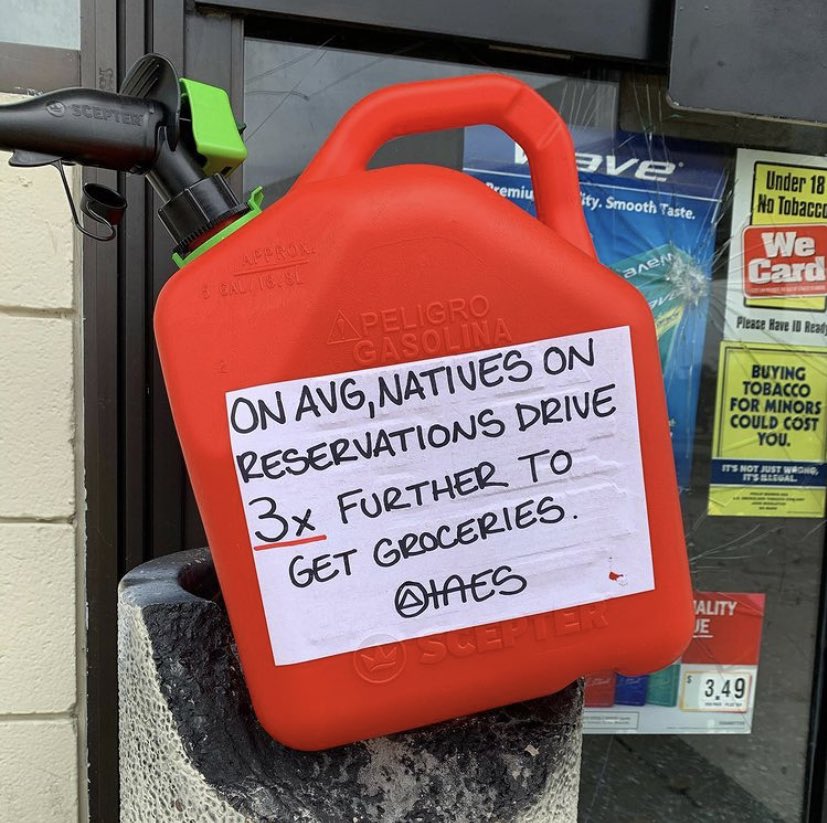 SCEPTER
APPROX.
PELIGRO
GASOLINA
ON AVG, NATIVES ON
RESERVATIONS DRIVE
3x FURTHER TO
GET GROCERIES.
SCEPTER
Smooth Taste.
Under 18
No Tobacco
We
Card
Please Have ID Ready
BUYING
TOBACCO
FOR MINORS
COULD COST
YOU.
IT'S NOT JUST WRONG,
IT'S ILLEGAL.
$3.49